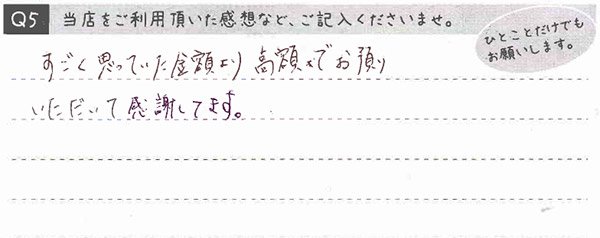 Q5 当店をご利用頂いた感想など、ご記入くださいませ。
ひとことだけでも
お願いします。
すごく思っていた金額より高額でお預り
いただいて感謝してます。